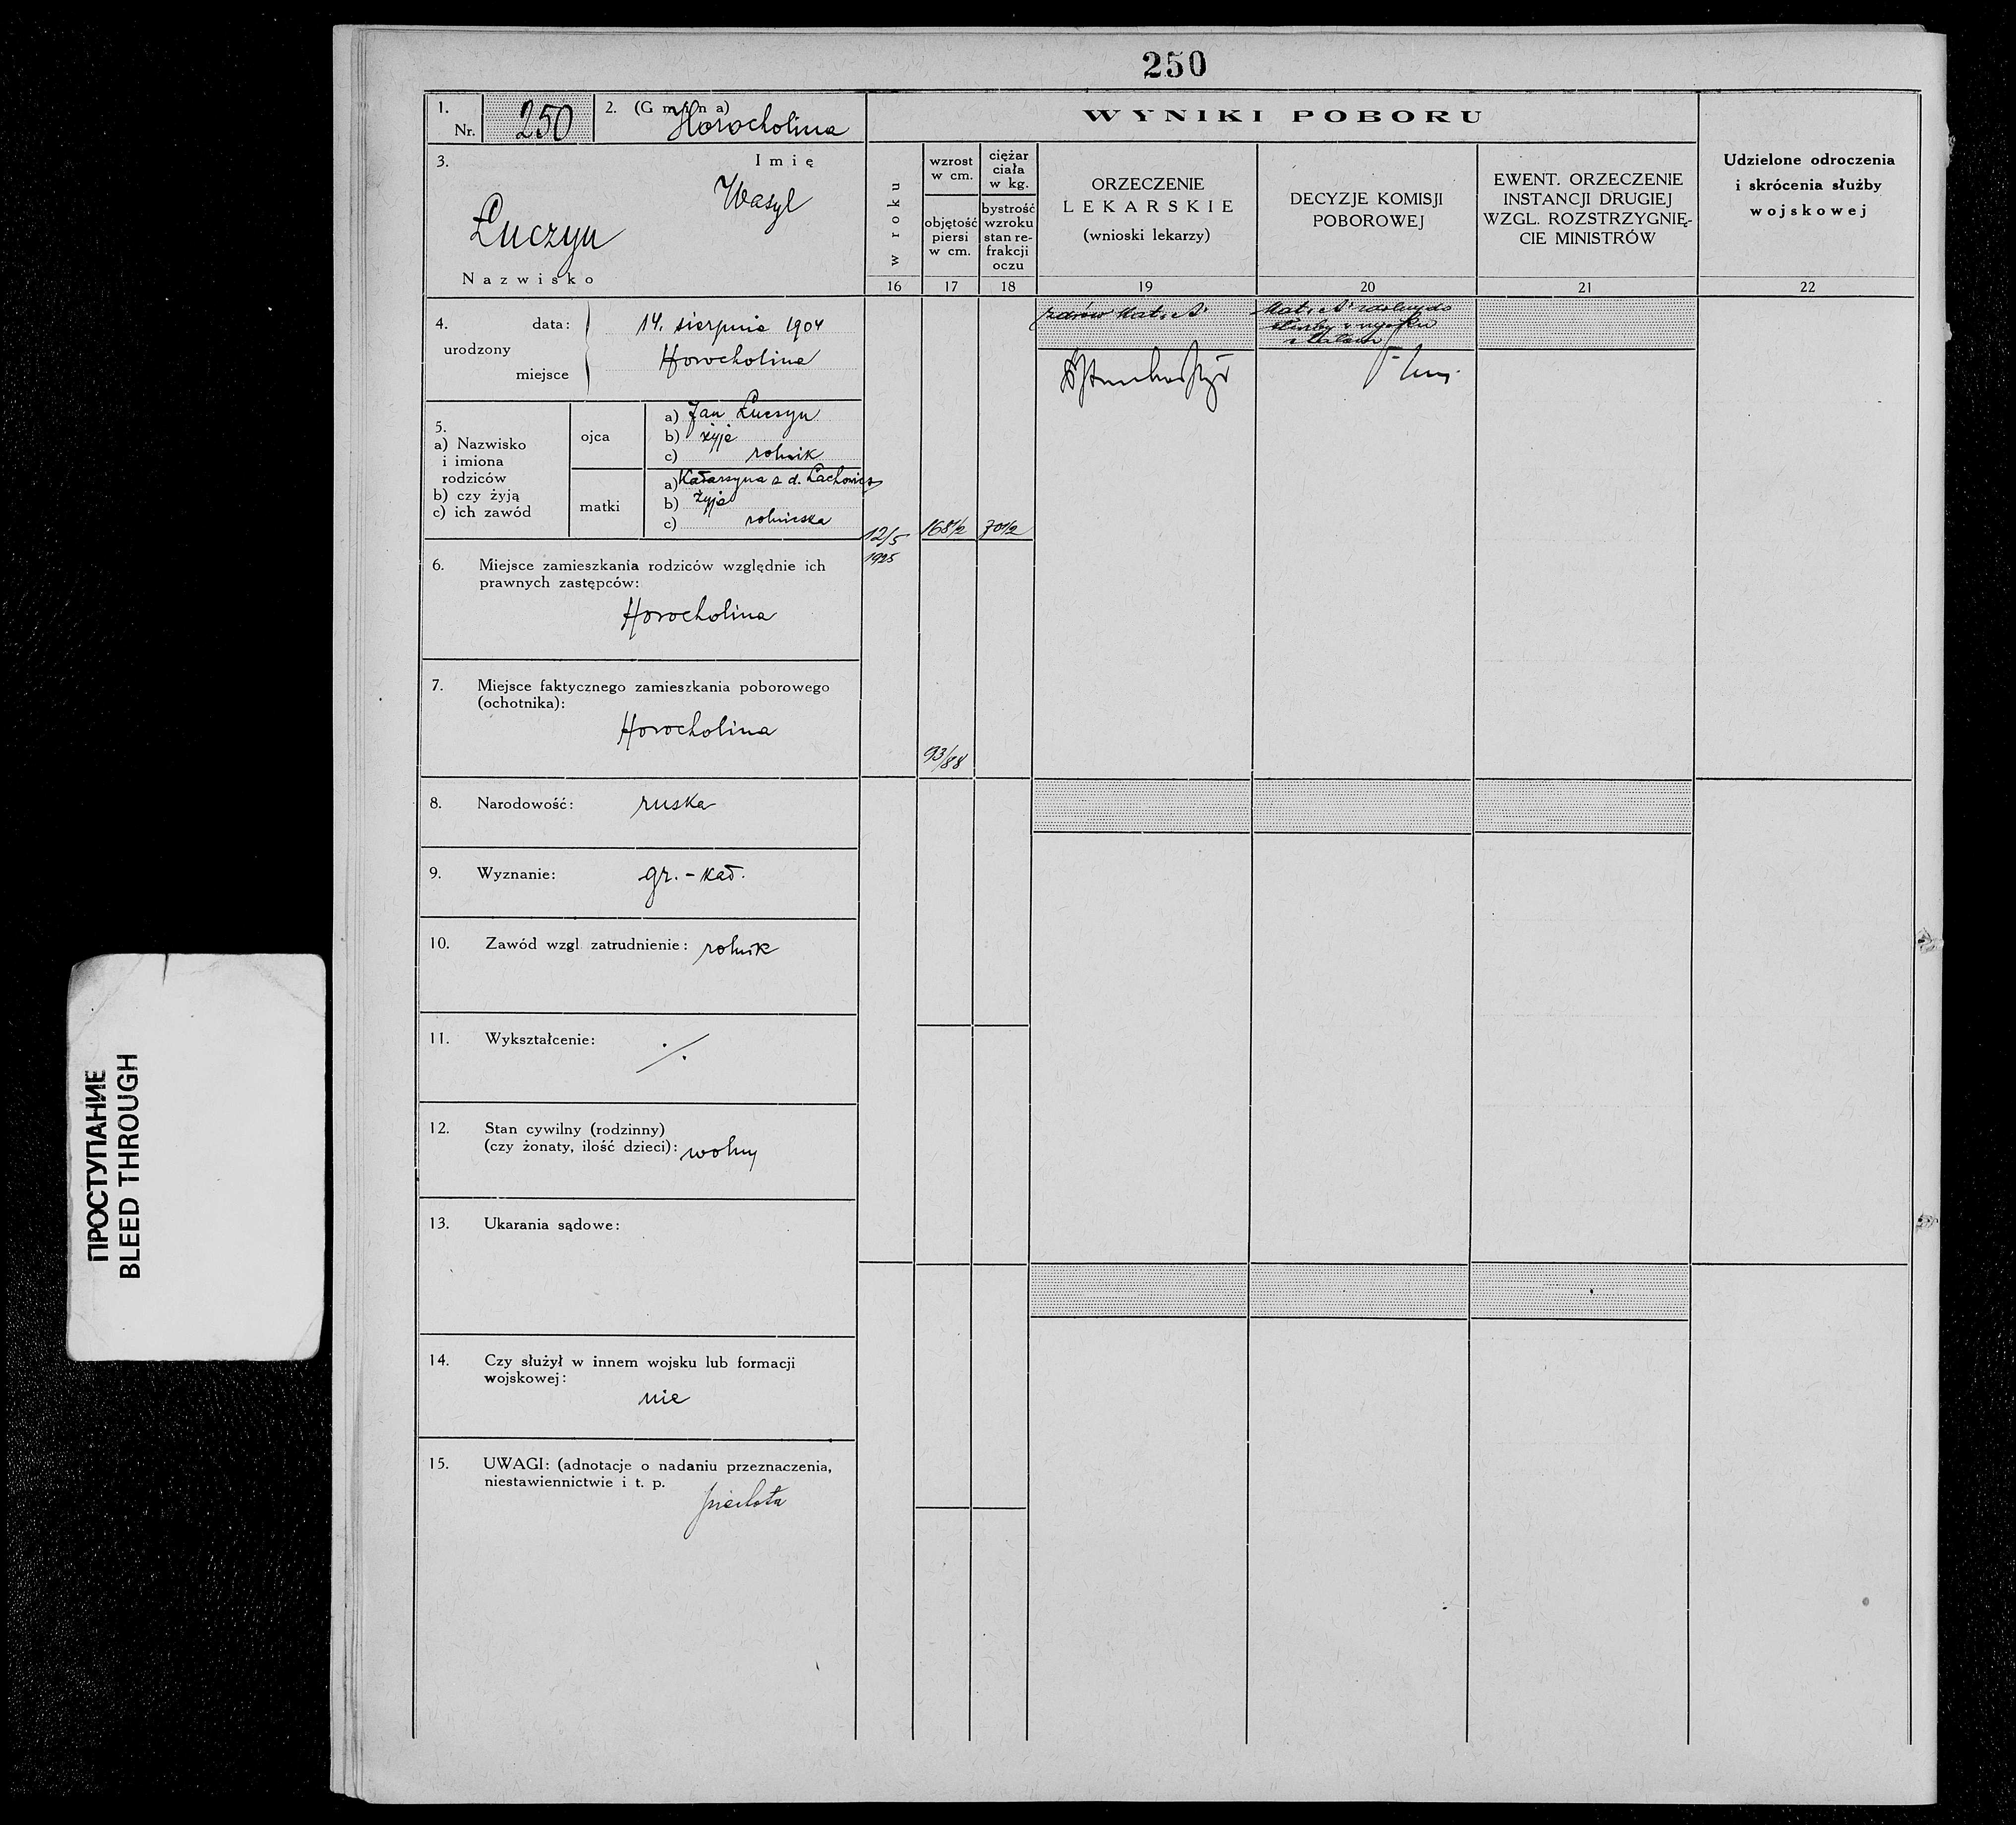 250
1.
Nr. 250
2. (Gmina)
Horocholina
3.
Imię
Wasyl
Łuczyn
Nazwisko
WYNIKI POBORU
w roku
wzrost
w cm.
objętość
piersi
w cm.
ciężar
ciała
w kg.
bystrość
wzroku
stan re-
frakcji
oczu
ORZECZENIE
LEKARSKIE
(wnioski lekarzy)
DECYZJE KOMISJI
POBOROWEJ
EWENT. ORZECZENIE
INSTANCJI DRUGIEJ
WZGL. ROZSTRZYGNIĘ-
CIE MINISTRÓW
Udzielone odroczenia
i skrócenia służby
wojskowej
16 17 18 19 20 21 22
4.
urodzony
data: 14. sierpnia 1904
miejsce Horocholina
zdrów kat. A
Kat. A zdolny do
służby w wojsku
5.
a) Nazwisko
i imiona
rodziców
b) czy żyją
c) ich zawód
ojca
a) Jan Łuczyn
b) żyje
c) rolnik
matki
a) Katarzyna z d. Lachowicz
b) żyje
c) rolniczka
12/5
1925
168 1/2
70 1/2
93/88
6. Miejsce zamieszkania rodziców względnie ich
prawnych zastępców:
Horocholina
7. Miejsce faktycznego zamieszkania poborowego
(ochotnika):
Horocholina
8. Narodowość: ruska
9. Wyznanie: gr.-kat.
10. Zawód wzgl. zatrudnienie: rolnik
11. Wykształcenie: ./.
12. Stan cywilny (rodzinny)
(czy żonaty, ilość dzieci): wolny
13. Ukarania sądowe:
14. Czy służył w innem wojsku lub formacji
wojskowej:
nie
15. UWAGI: (adnotacje o nadaniu przeznaczenia,
niestawiennictwie i t. p.
piechota
ПРОСТУПАНИЕ
BLEED THROUGH